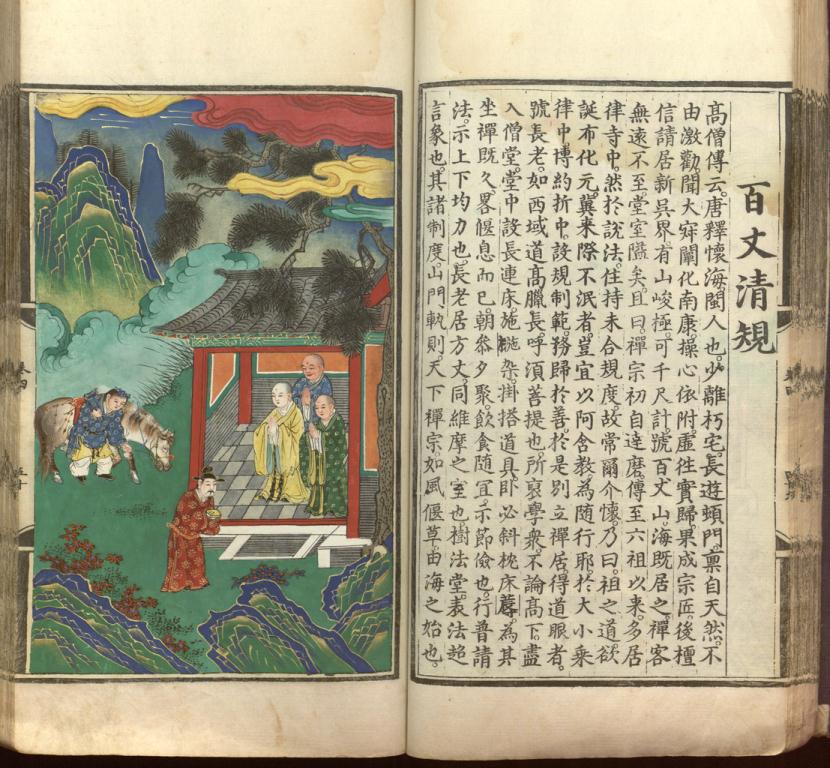 百丈清規
高僧傳云。唐釋懷海。閩人也。少離朽宅。長遊頓門。禀自天然。不
由激勸。聞大寂闡化南康。操心依附。虛往實歸。果成宗匠。後檀
信請居新吳界。有山峻極。可千尺計。號百丈山。海既居之。禪客
無遠不至。堂室隘矣。且曰。禪宗初自達磨傳至六祖以來。多居
律寺中。然於說法住持。未合規度。故常爾介懷。乃曰。祖之道。欲
誕布化元。冀來際不泯者。豈宜以阿含教為隨行耶。於大小乘
律中。博約折中。設規制範。務歸於善。於是別立禪居。得道眼者。
號長老。如西域道高臘長。呼須菩提也。所裒學衆。不論高下。盡
入僧堂。堂中設長連床。施椸架。掛搭道具。臥必斜枕床脣。為其
坐禪既久。畧偃息而已。朝參夕聚。飲食隨宜。示節儉也。行普請
法。示上下均力也。長老居方丈。同維摩之室也。樹法堂。表法超
言象也。其諸制度。山門軌則。天下禪宗。如風偃草。由海之始也。